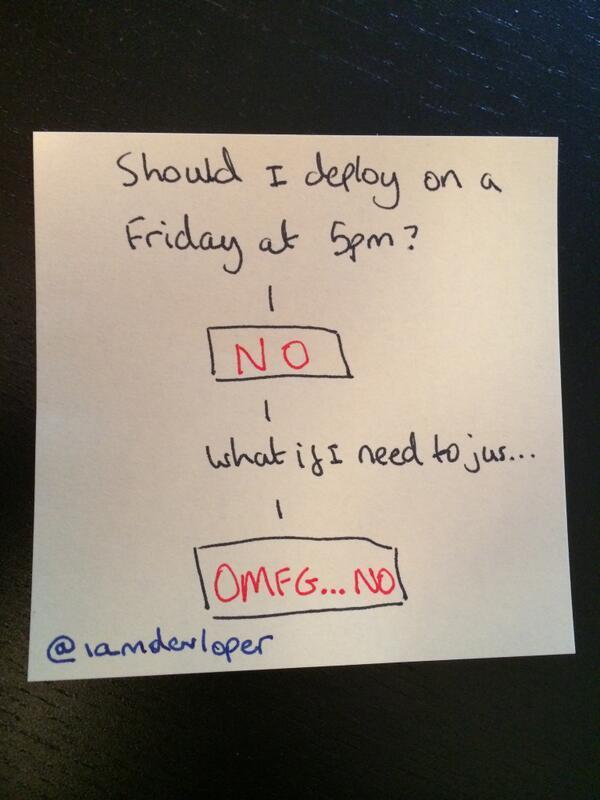 Should I deploy on a
Friday at 5pm?
NO
What if I need to jus...
OMFG...NO
@iamdevloper